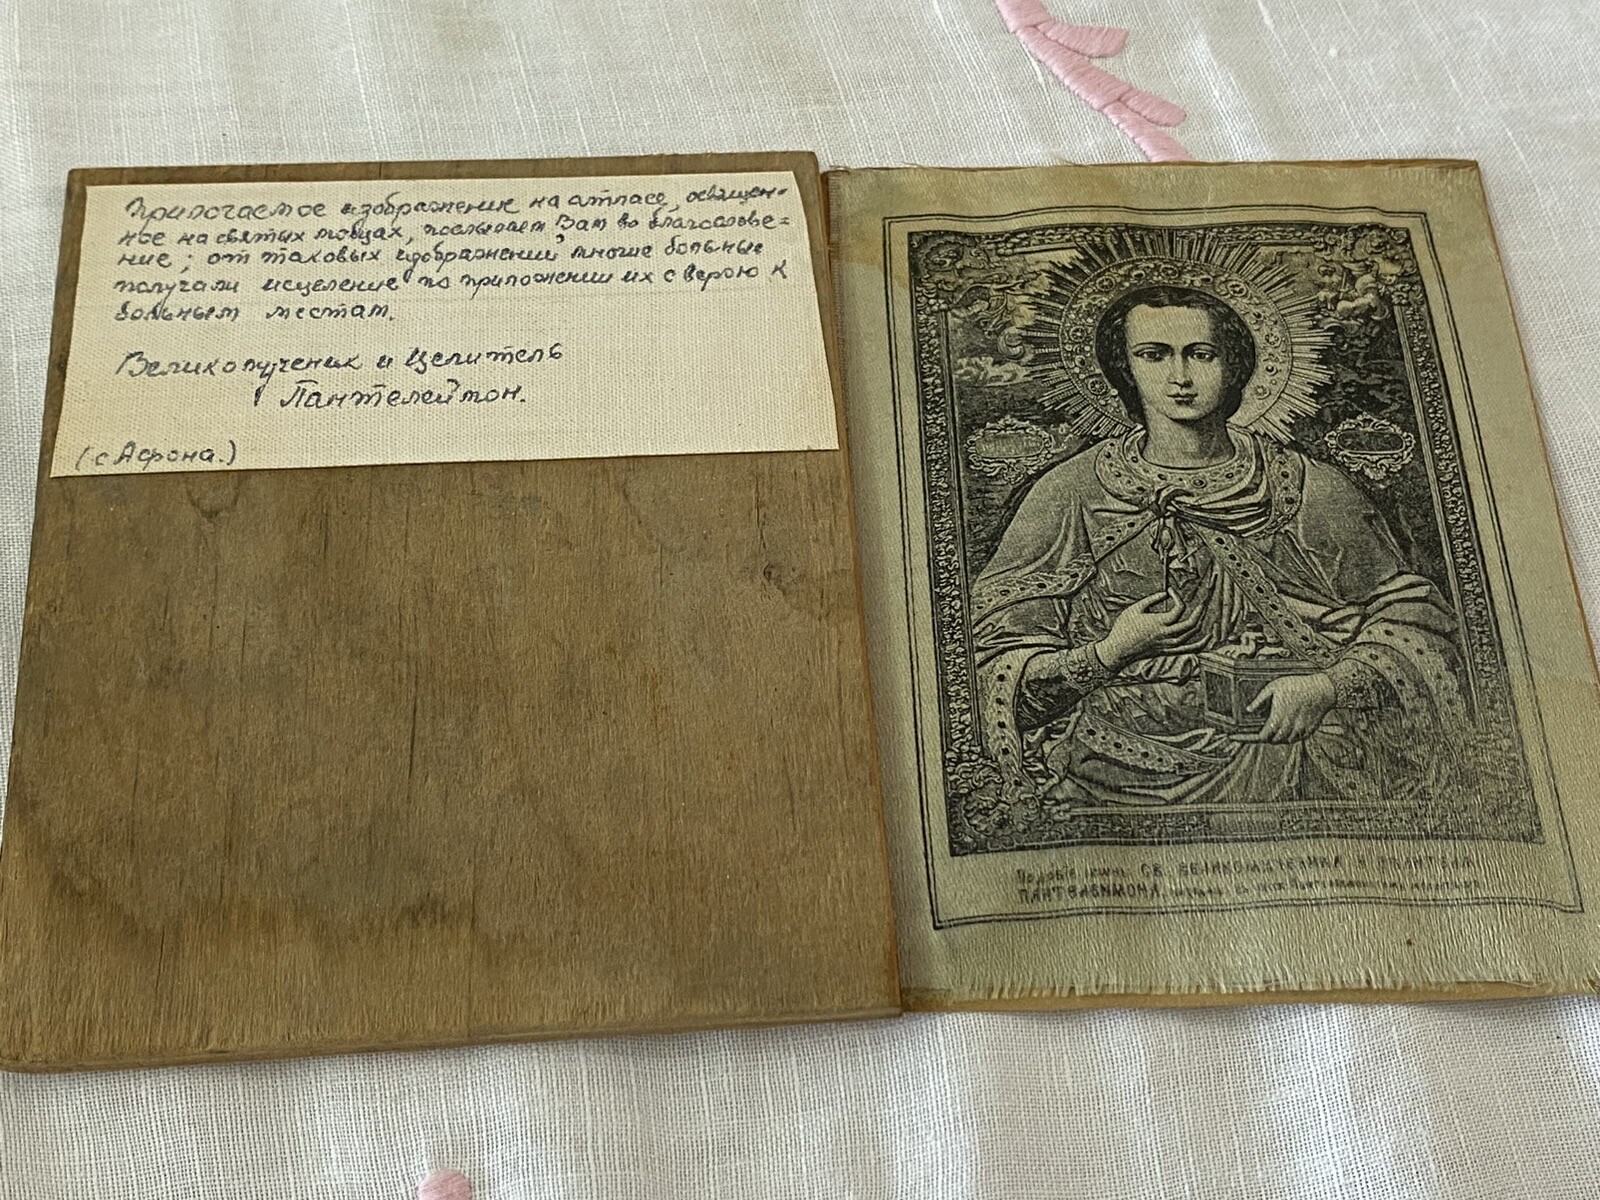 Прилогаемое изображение на атласе, освящен-
ное на святых мощах, посылаем Вам во благослове=
ние; от таковых изображений многие больные
получали исцеление по приложении их с верою к
больным местам.
Великомученик и Целитель
Пантелеймон.
(с Афона.)
Подобіе иконы СВ. ВЕЛИКОМУЧЕНИКА И ЦѢЛИТЕЛЯ
ПАНТЕЛЕИМОНА,